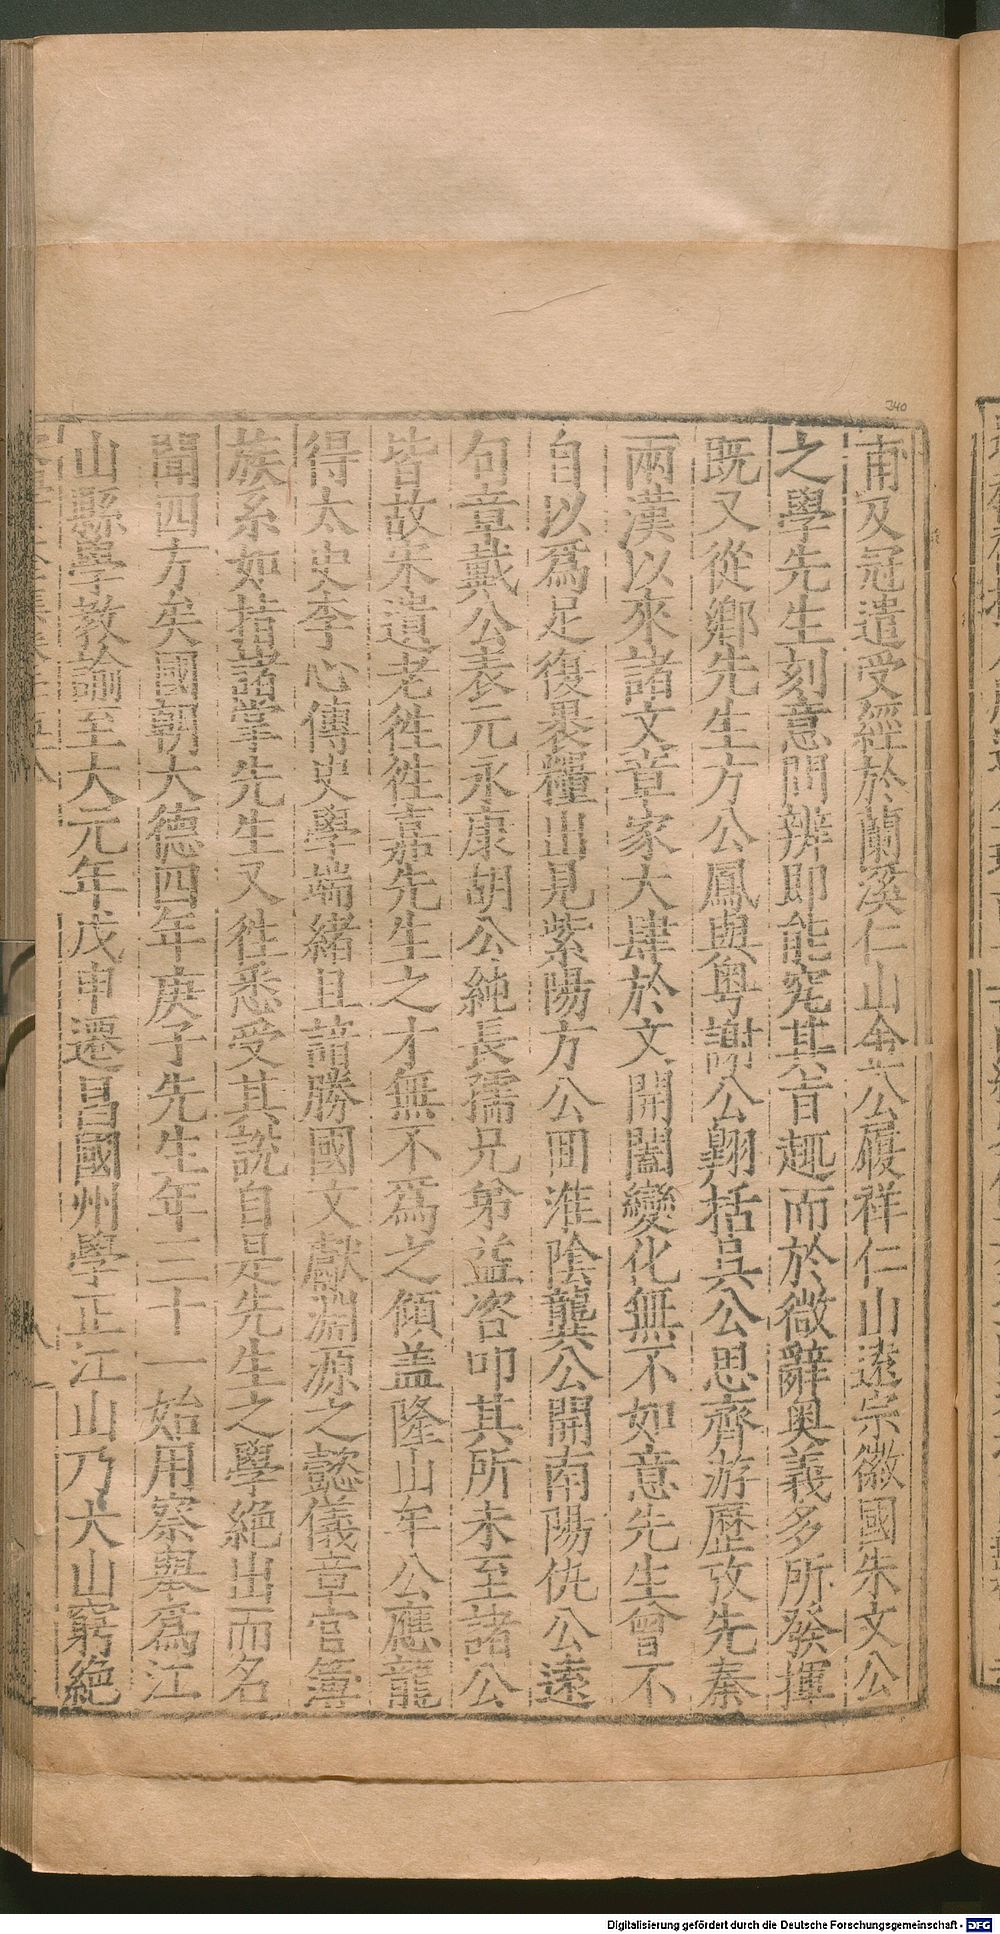 甫及冠遣受經於蘭溪仁山金公履祥仁山遠宗徽國朱文公
之學先生刻意問辨即能究其旨趣而於微辭奥義多所發揮
既又從鄉先生方公鳳與粤謝公翱括吳公思齊游歷攷先秦
兩漢以來諸文章家大肆於文開闔變化無不如意先生曾不
自以爲足復裹糧出見紫陽方公回淮陰龔公開南陽仇公遠
句章戴公表元永康胡公純長孺兄弟益咨叩其所未至諸公
皆故宋遺老徃徃嘉先生之才無不爲之傾盖隆山牟公應龍
得太史李心傳史學端緒且諸勝國文獻淵源之懿儀章官簿
族系如指諸掌先生又徃悉受其說自是先生之學絶出而名
聞四方矣國朝大德四年庚子先生年三十一始用察舉爲江
山縣學教諭至大元年戊申遷昌國州學正江山乃大山窮絶
340
Digitalisierung gefördert durch die Deutsche Forschungsgemeinschaft - DFG